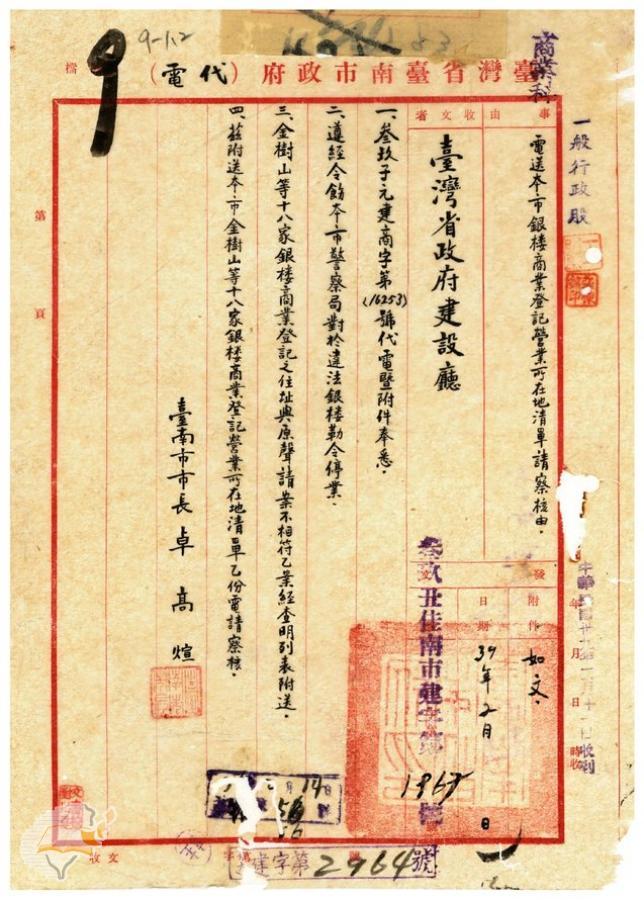 9-1.2
9
臺灣省臺南市政府(代電)
檔
商業科
一般行政股
事由
電送本市銀楼商業登記營業所在地清單請察核由。
收文者
臺灣省政府建設廳
發文
附件
如文。
日期
39年2月 日
叁玖丑佳南市建字第1967號
一、叁玖子元建商字第(16253)號代電暨附件奉悉。
二、遵經令飭本市警察局對於違法銀楼勒令停業。
三、金樹山等十八家銀楼商業登記之住址與原聲請案不相符乙業經查明列表附送。
四、茲附送本市金樹山等十八家銀楼商業登記營業所在地清單乙份電請察核。
臺南市市長卓高煊
第 頁
年 月 日 時收到
月14日
建字第2964號
收文 字第 號